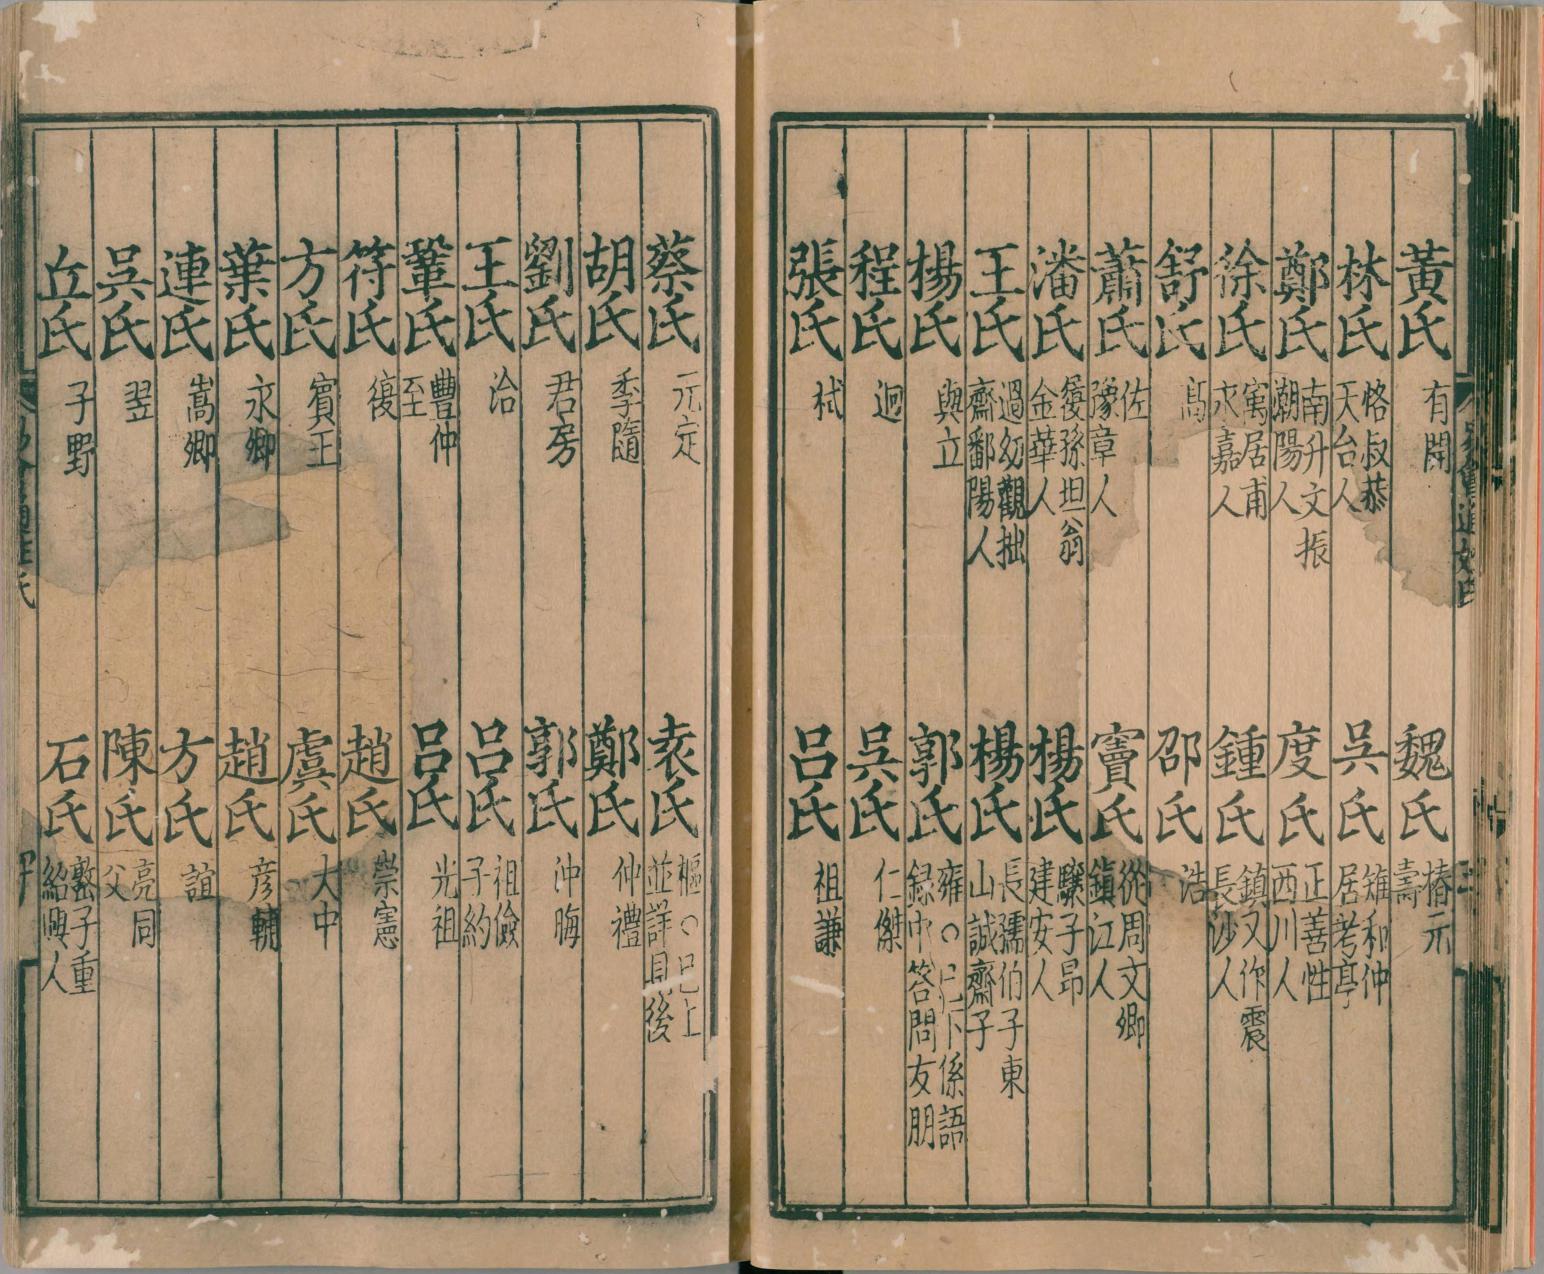 黃氏 有開 魏氏 椿元壽
林氏 恪叔恭天台人 吳氏 雉和仲居考亭
鄭氏 南升文振潮陽人 度氏 正善性西川人
徐氏 㝢居甫永嘉人 鍾氏 鎮又作震長沙人
舒氏 高 邵氏 浩
蕭氏 佐豫章人 竇氏 從周文卿鎮江人
潘氏 履孫坦翁金華人 楊氏 驤子昂建安人
王氏 過幼觀拙齋鄱陽人 楊氏 長孺伯子東山誠齋子
楊氏 與立 郭氏 雍○已下係語録中答問友朋
程氏 迥 吳氏 仁傑
張氏 栻 呂氏 祖謙
蔡氏 元定 袁氏 樞○已上並詳見後
胡氏 季隨 鄭氏 仲禮
劉氏 君房 郭氏 沖晦
王氏 洽 呂氏 祖儉子約
鞏氏 豐仲至 呂氏 光祖
符氏 復 趙氏 崇憲
方氏 賓王 虞氏 大中
葉氏 永卿 趙氏 彦輔
連氏 嵩卿 方氏 誼
吳氏 翌 陳氏 亮同父
丘氏 子野 石氏 𡼖子重紹興人